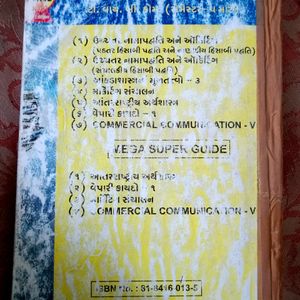 ટી. વાય. બી. કોમ. (સેમેસ્ટર - ૫ માટે)
(૧) ઉચ્ચતર નામાપદ્ધતિ અને ઓડિટિંગ
(પડતર હિસાબી પદ્ધતિ અને નાણાકીય હિસાબી પદ્ધતિ)
(૨) ઉચ્ચતર નામાપદ્ધતિ અને ઓડિટિંગ
(સંચાલકીય હિસાબી પદ્ધતિ)
(૩) આંકડાશાસ્ત્રના મૂળતત્ત્વો - ૩
(૪) માર્કેટિંગ સંચાલન
(૫) આંતરરાષ્ટ્રીય અર્થશાસ્ત્ર
(૬) વેપારી કાયદો - ૧
(૭) COMMERCIAL COMMUNICATION - V
MEGA SUPER GUIDE
(૧) આંતરરાષ્ટ્રીય અર્થશાસ્ત્ર
(૨) વેપારી કાયદો - ૧
(૩) માર્કેટિંગ સંચાલન
(૪) COMMERCIAL COMMUNICATION - V
ISBN No. : 81-8416-013-5